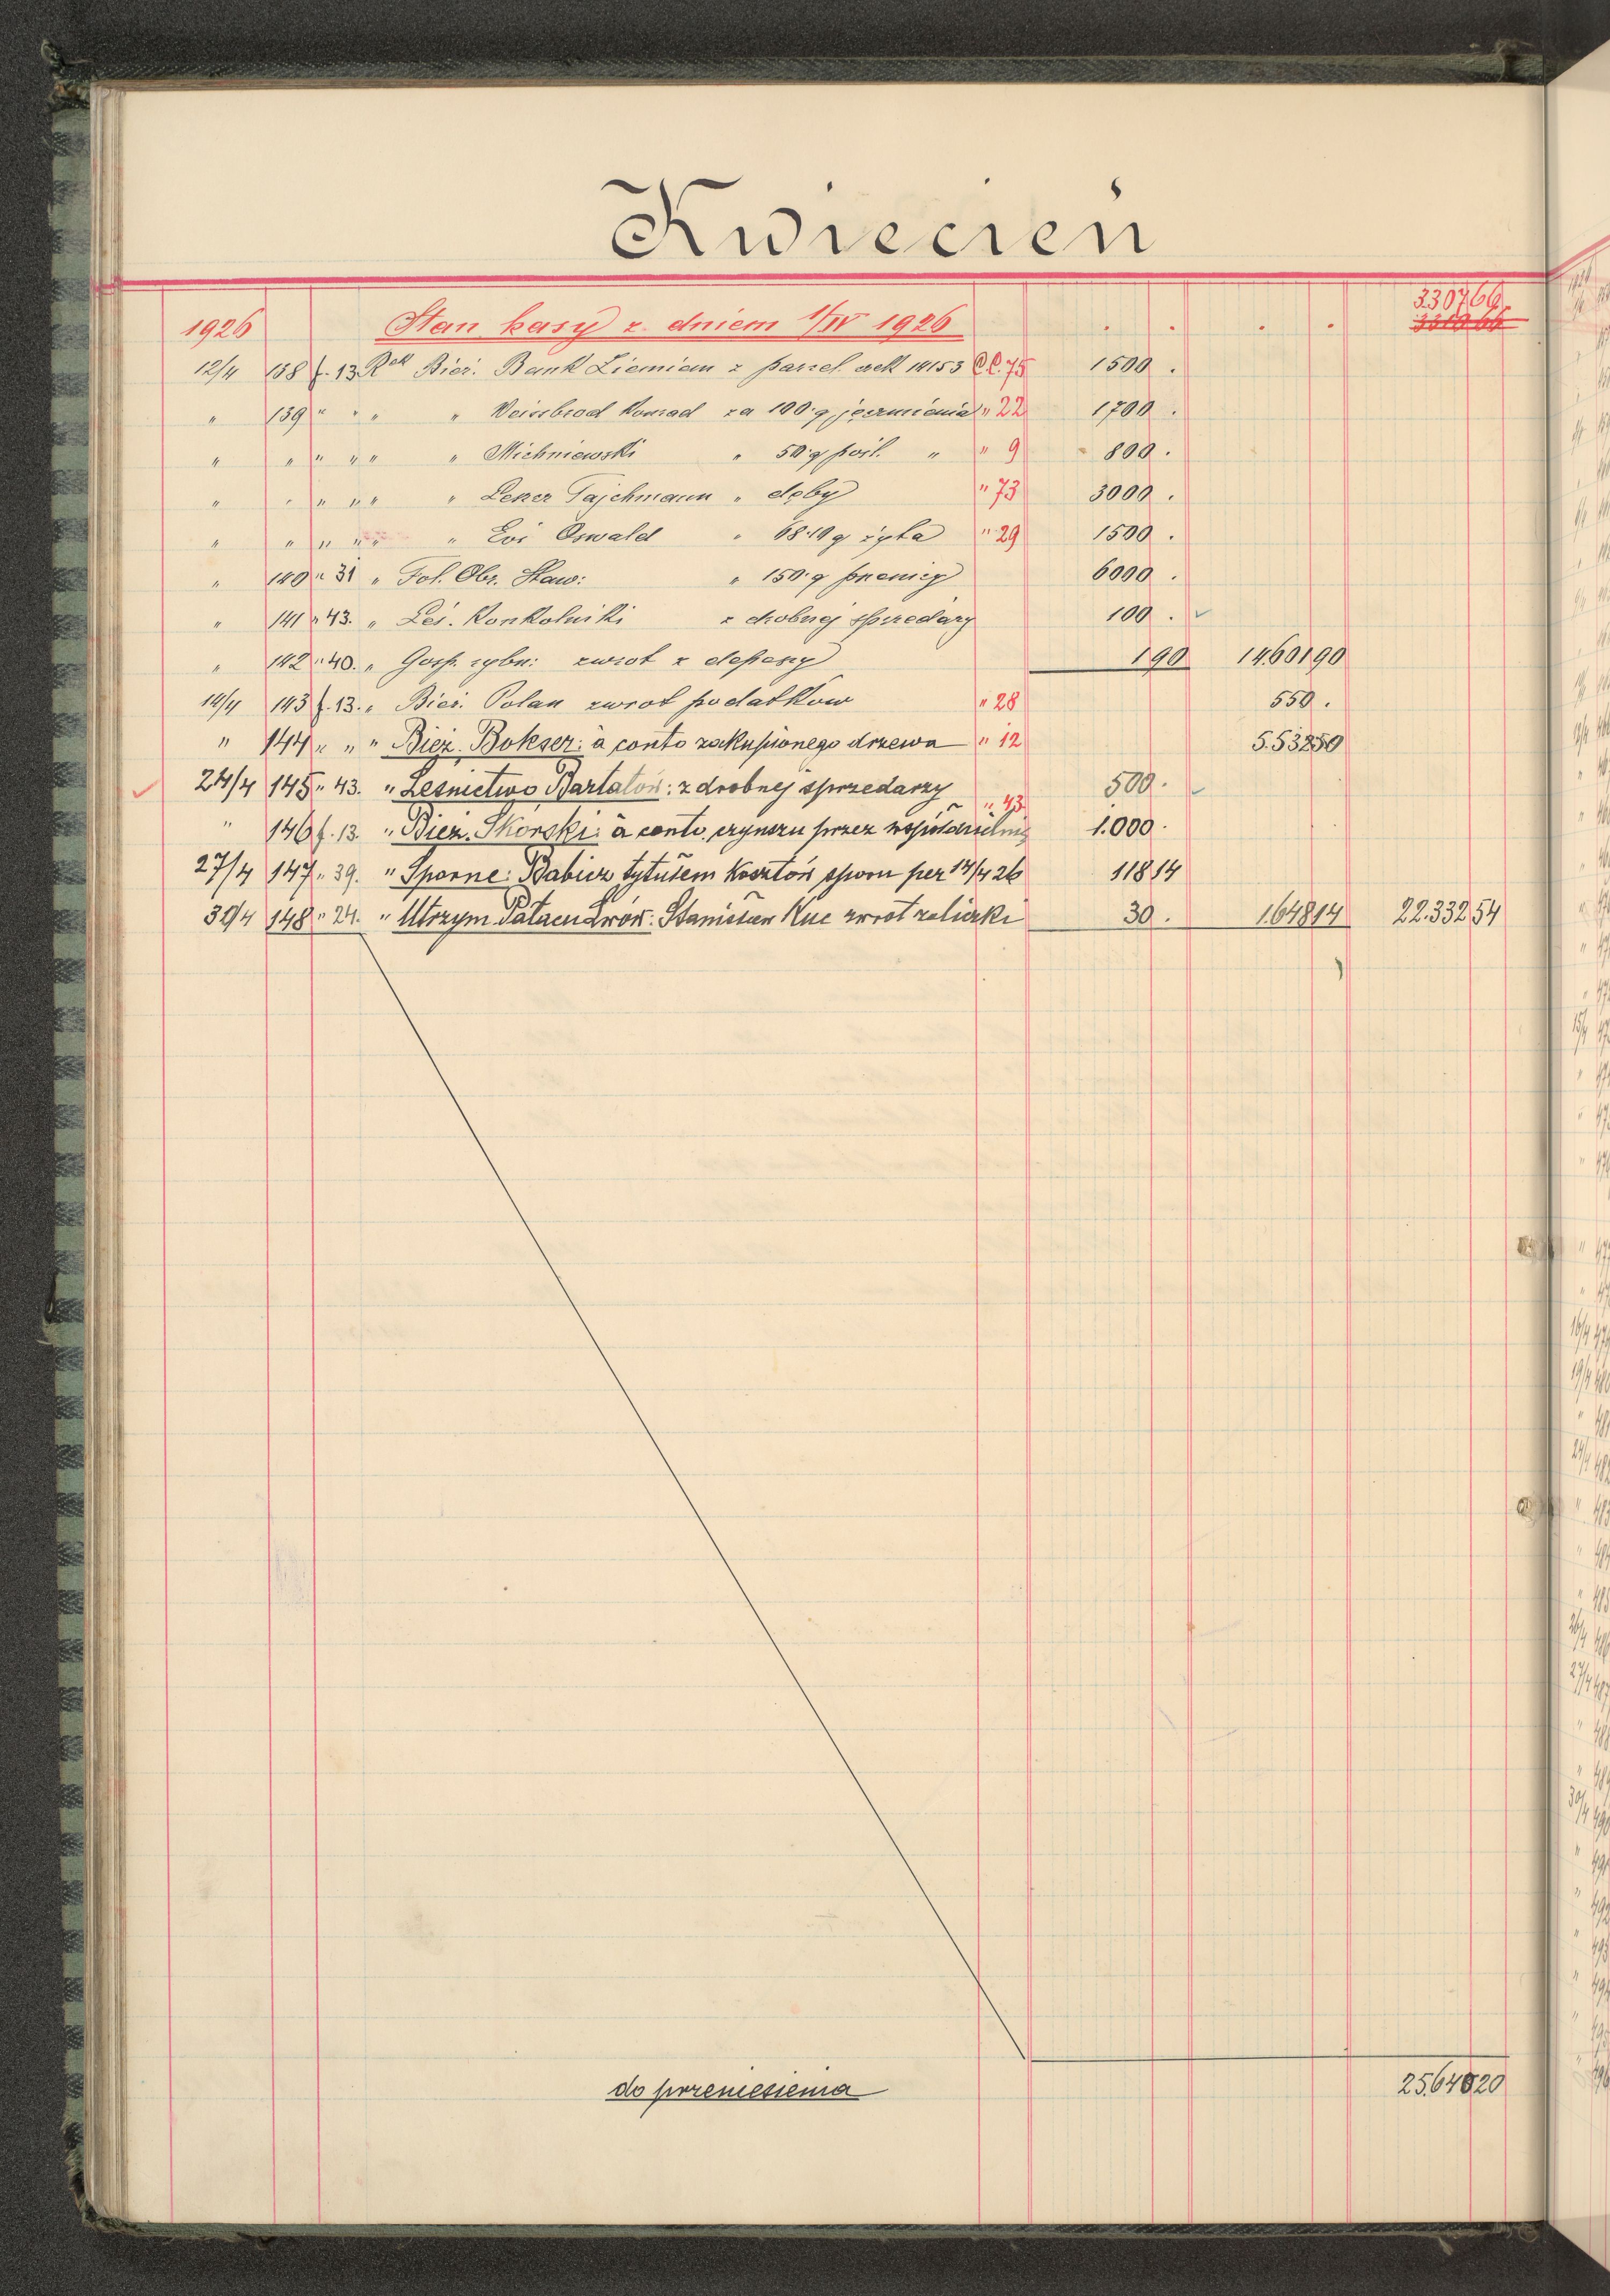 Kwiecień
1926 Stan kasy z dniem 1/IV 1926 . . . . 3307 66
12/4 138 f. 13. Rek Bież. Bank Ziemian z parcel. wek 14153 CC. 75 1500 .
" 139 " " " " Weissbrod Konrad za 100 q jęczmienia " 22 1700 .
" " " " " " Michniewski " 50 q pośl. " " 9 800 .
" " " " " " Lezer Tajchmann " dęby " 73 3000 .
" " " " " " Loi Oswald " 68.10 q żyta " 29 1500 .
" 140 " 31 " Fol. Obr. Staw: " 150 q pszenicy 6000 .
" 141 " 43. " Leś. Konkolniki z drobnej sprzedaży 100 .
" 142 " 40. " Gosp. rybn: zwrot z depeszy 1 90 14.601 90
14/4 143 f. 13. " Bież. Polan zwrot podatków " 28 550 .
" 144 " " " Bież. Bokser: à conto zakupionego drzewa " 12 5.532 50
24/4 145 " 43. " Leśnictwo Bartatów: z drobnej sprzedarzy 500 .
" 146 f. 13. " Bież. Skorski: à conto czynszu przez współdzielnię " 43 1.000 .
27/4 147 " 39. " Sporne: Babicz tytułem kosztów sporu per 14/4 26 118 14
30/4 148 " 24. " Utrzym. Pałacu Lwów: Stanisław Kuc zwrot zaliczki 30 . 1.648 14 22.332 54
do przeniesienia 25.640 20